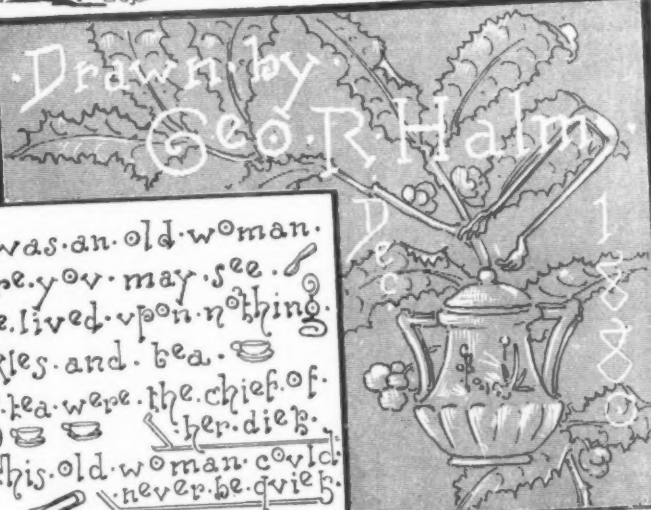 ·Drawn·by·
Geo·R·Halm·
Dec
1880
was·an·old·woman·
yov·may·see·
lived·vpon·nothing·
and·tea·
tea·were·the·chief·of·
·her·diet·
this·old·woman·covld·
·never·be·qviet·